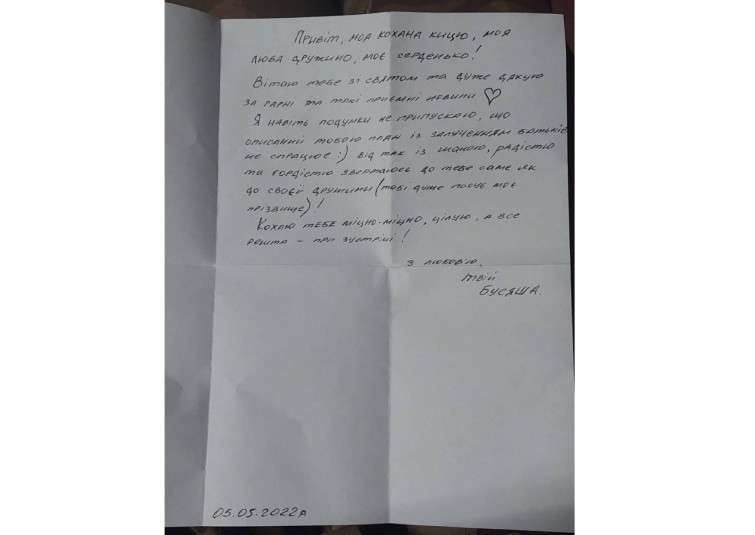 Привіт, моя кохана кицю, моя
люба дружино, моє серденько!
Вітаю тебе зі святом та дуже дякую
за гарні та такі приємні новини ♡
Я навіть подумки не припускаю, що
описанні тобою план із залученням батьків
не спрацює :) Від так із шаною, радістю
та гордістю звертаюсь до тебе саме як
до своєї дружини (тобі дуже пасує моє
прізвище)!
Кохаю тебе міцно-міцно, цілую, а все
решта – при зустрічі!
З любов'ю,
твій
Бусяша.
05.05.2022р